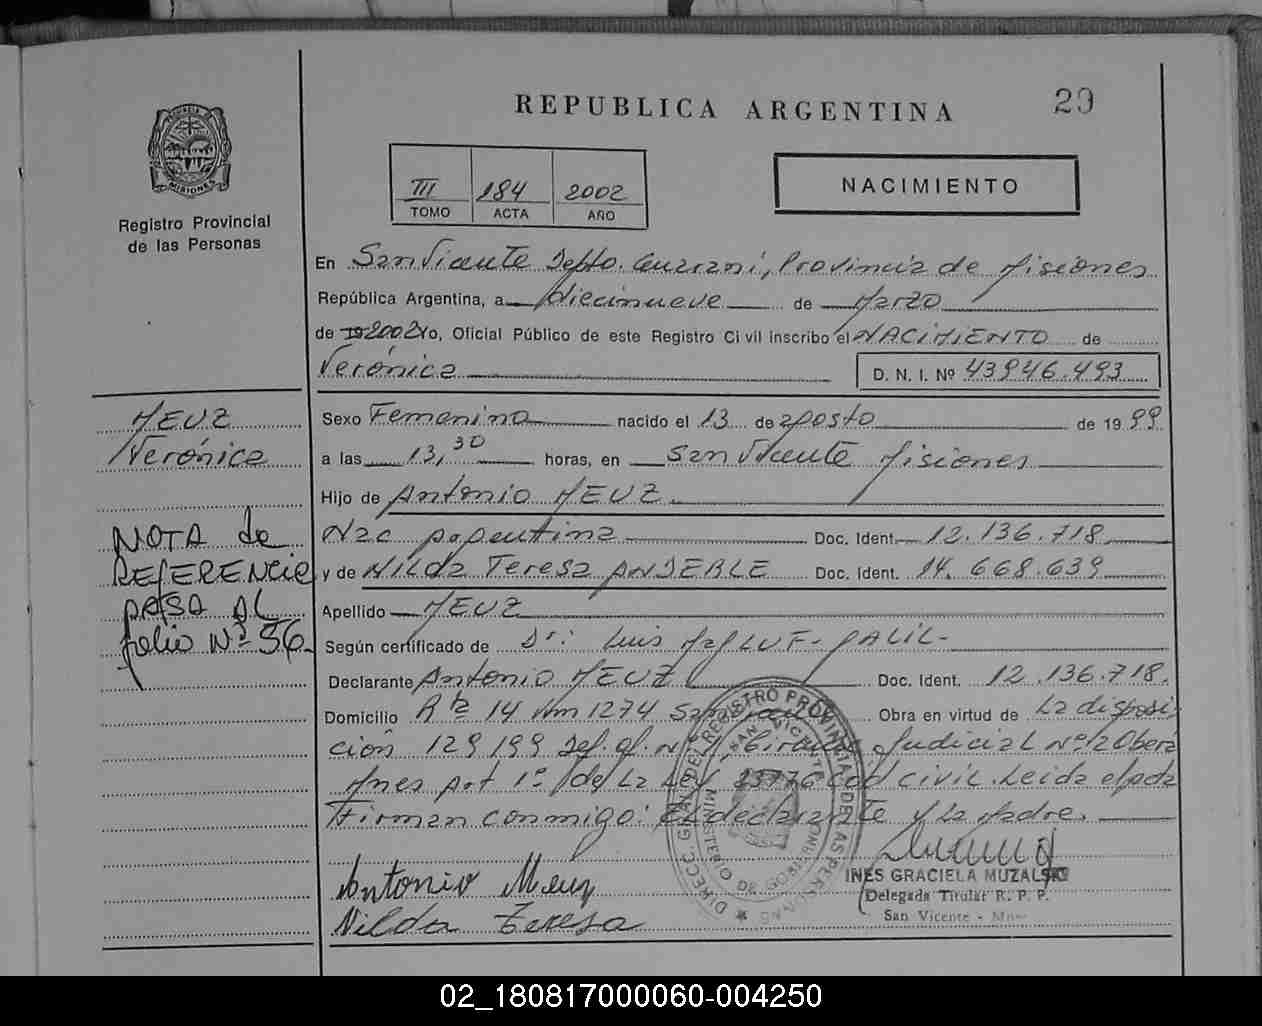 REPUBLICA ARGENTINA
29
PROVINCIA DE MISIONES
Registro Provincial
de las Personas
III 184 2002
TOMO ACTA AÑO
NACIMIENTO
En San Vicente Depto. Guaraní, Provincia de Misiones
República Argentina, a diecinueve de Marzo
de 19 2002 Yo, Oficial Público de este Registro Civil inscribo el NACIMIENTO de
Verónica D. N. I. Nº 43946.493
MEUZ
Verónica
Sexo Femenino nacido el 13 de agosto de 19 99
a las 13,30 horas, en San Vicente Misiones
Hijo de Antonio MEUZ
Nac Argentina Doc. Ident. 12.136.718
NOTA de
REFERENCIE
PASA AL
folio Nº 56.
y de Nilda Teresa ANDERLE Doc. Ident. 14.668.639
Apellido MEUZ
Según certificado de Dr: Luis MALLUF-GALIL-
Declarante Antonio MEUZ Doc. Ident. 12.136.718.
Domicilio R 14 Km 1274 San Obra en virtud de La disposi
ción 129 199 Judicial Nº 2 Oberá
Mnes art 1º de La Ley 23776 cod civil. Leida el acta
Firman conmigo: El declarante y La Madre.
Antonio Meuz
Nilda Teresa
INES GRACIELA MUZALSKI
Delegada Titular R. P. P.
San Vicente - Mnes
DIRECC. GRAL. DEL REGISTRO PROVINCIAL DE LAS PERSONAS
MINISTERIO DE GOBIERNO
SAN VICENTE
02_180817000060-004250